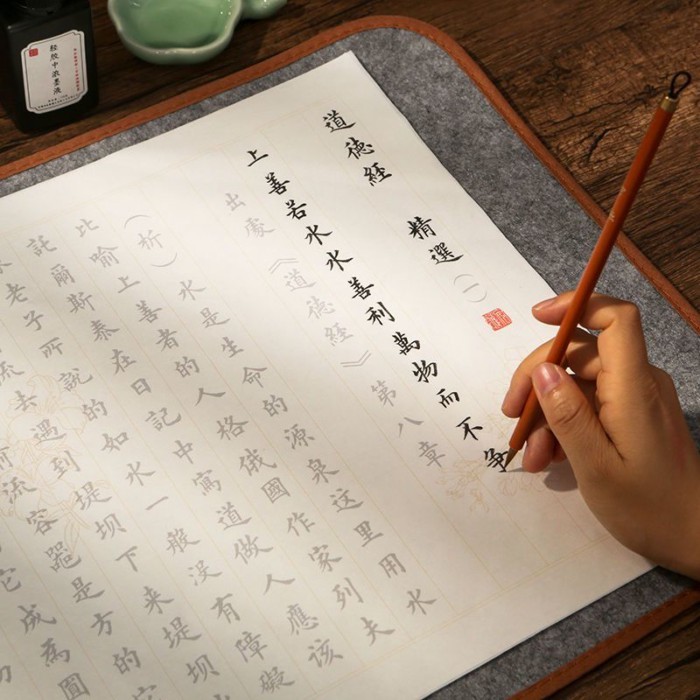 道德經 精選(一)
上善若水水善利萬物而不争
出處《道德經》第八章
(析)水是生命的源泉这里用水
比喻上善者的人格俄國作家列夫
託爾斯泰在日記中寫道做人應該
老子所說的如水一般没有障礙
流去遇到堤坝下来堤坝
流容器是方的容
它成為圓
胶中浓墨液